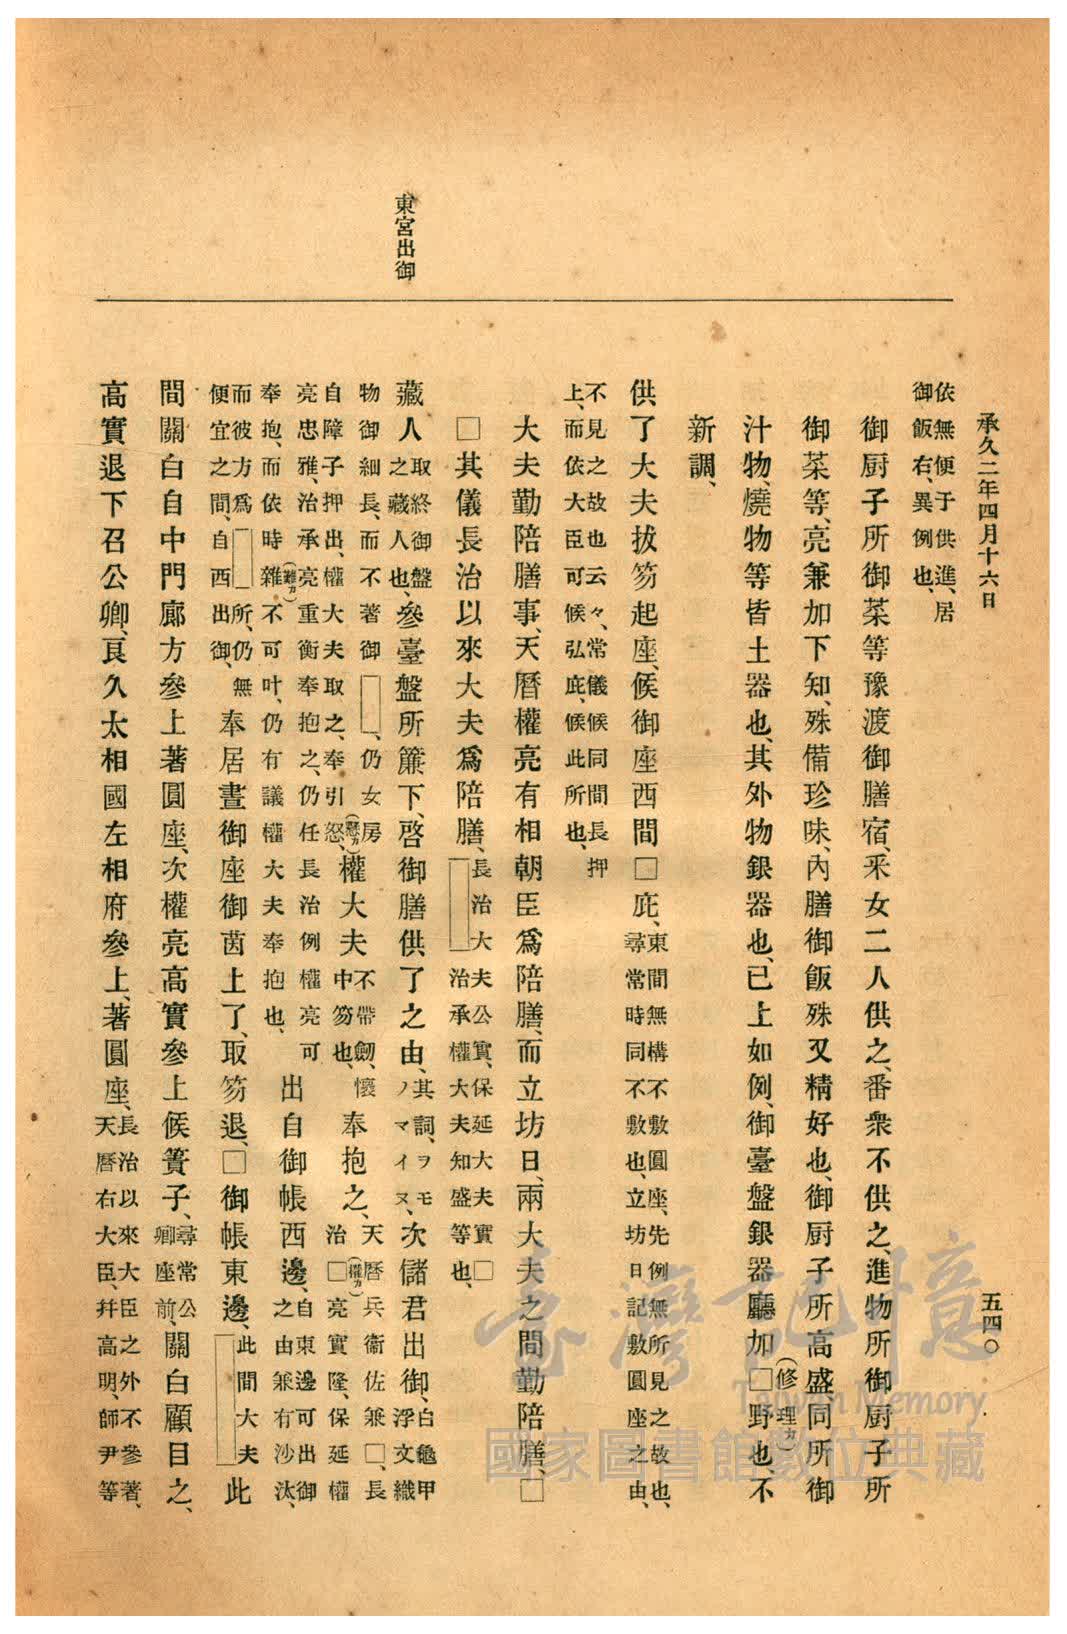 承久二年四月十六日
五四〇
東宮出御
依無便于供進、居
御飯右、異例也、
御厨子所御菜等豫渡御膳宿、釆女二人供之、番衆不供之、進物所御厨子所
御菜等、亮兼加下知、殊備珍味、內膳御飯殊又精好也、御厨子所高盛同所御
汁物、燒物等皆土器也、其外物銀器也、已上如例、御臺盤銀器廳加□(修理カ)野也、不
新調、
供了大夫拔笏起座、候御座西間□庇、東間無構不敷圓座、先例無所見之故也、
尋常時同不敷也、立坊日記敷圓座之由、
不見之故也云々、常儀候同間長押
上、而依大臣可候弘庇、候此所也、
大夫勤陪膳事、天曆權亮有相朝臣爲陪膳、而立坊日、兩大夫之間勤陪膳、□
□其儀長治以來大夫爲陪膳、長治大夫公實、保延大夫實□
治承權大夫知盛等也、
藏人取終御盤
之藏人也、參臺盤所簾下、啓御膳供了之由、其詞、ヲモ
ノマイヌ、次儲君出御、白龜甲
浮文織
物御細長、而不著御、仍女房
自障子押出、權大夫取之、奉引怒、(懸カ)權大夫不帶劒、懷
中笏也、奉抱之、天曆兵衞佐兼□、長
治□(權カ)亮實隆、保延權
亮忠雅、治承亮重衡奉抱之、仍任長治例權亮可
奉抱、而依時雜(難カ)不可叶、仍有議權大夫奉抱也、出自御帳西邊、自東邊可出御
之由兼有沙汰、
而彼方爲所、仍無
便宜之間、自西出御、奉居晝御座御茵上了、取笏退、□御帳東邊、此間大夫此
間關白自中門廊方參上著圓座、次權亮高實參上候簀子、尋常公
卿座前、關白顧目之、
高實退下召公卿、良久太相國左相府參上、著圓座、長治以來大臣之外不參著、
天曆右大臣、幷高明、師尹等
臺灣記憶
Taiwan Memory
國家圖書館數位典藏